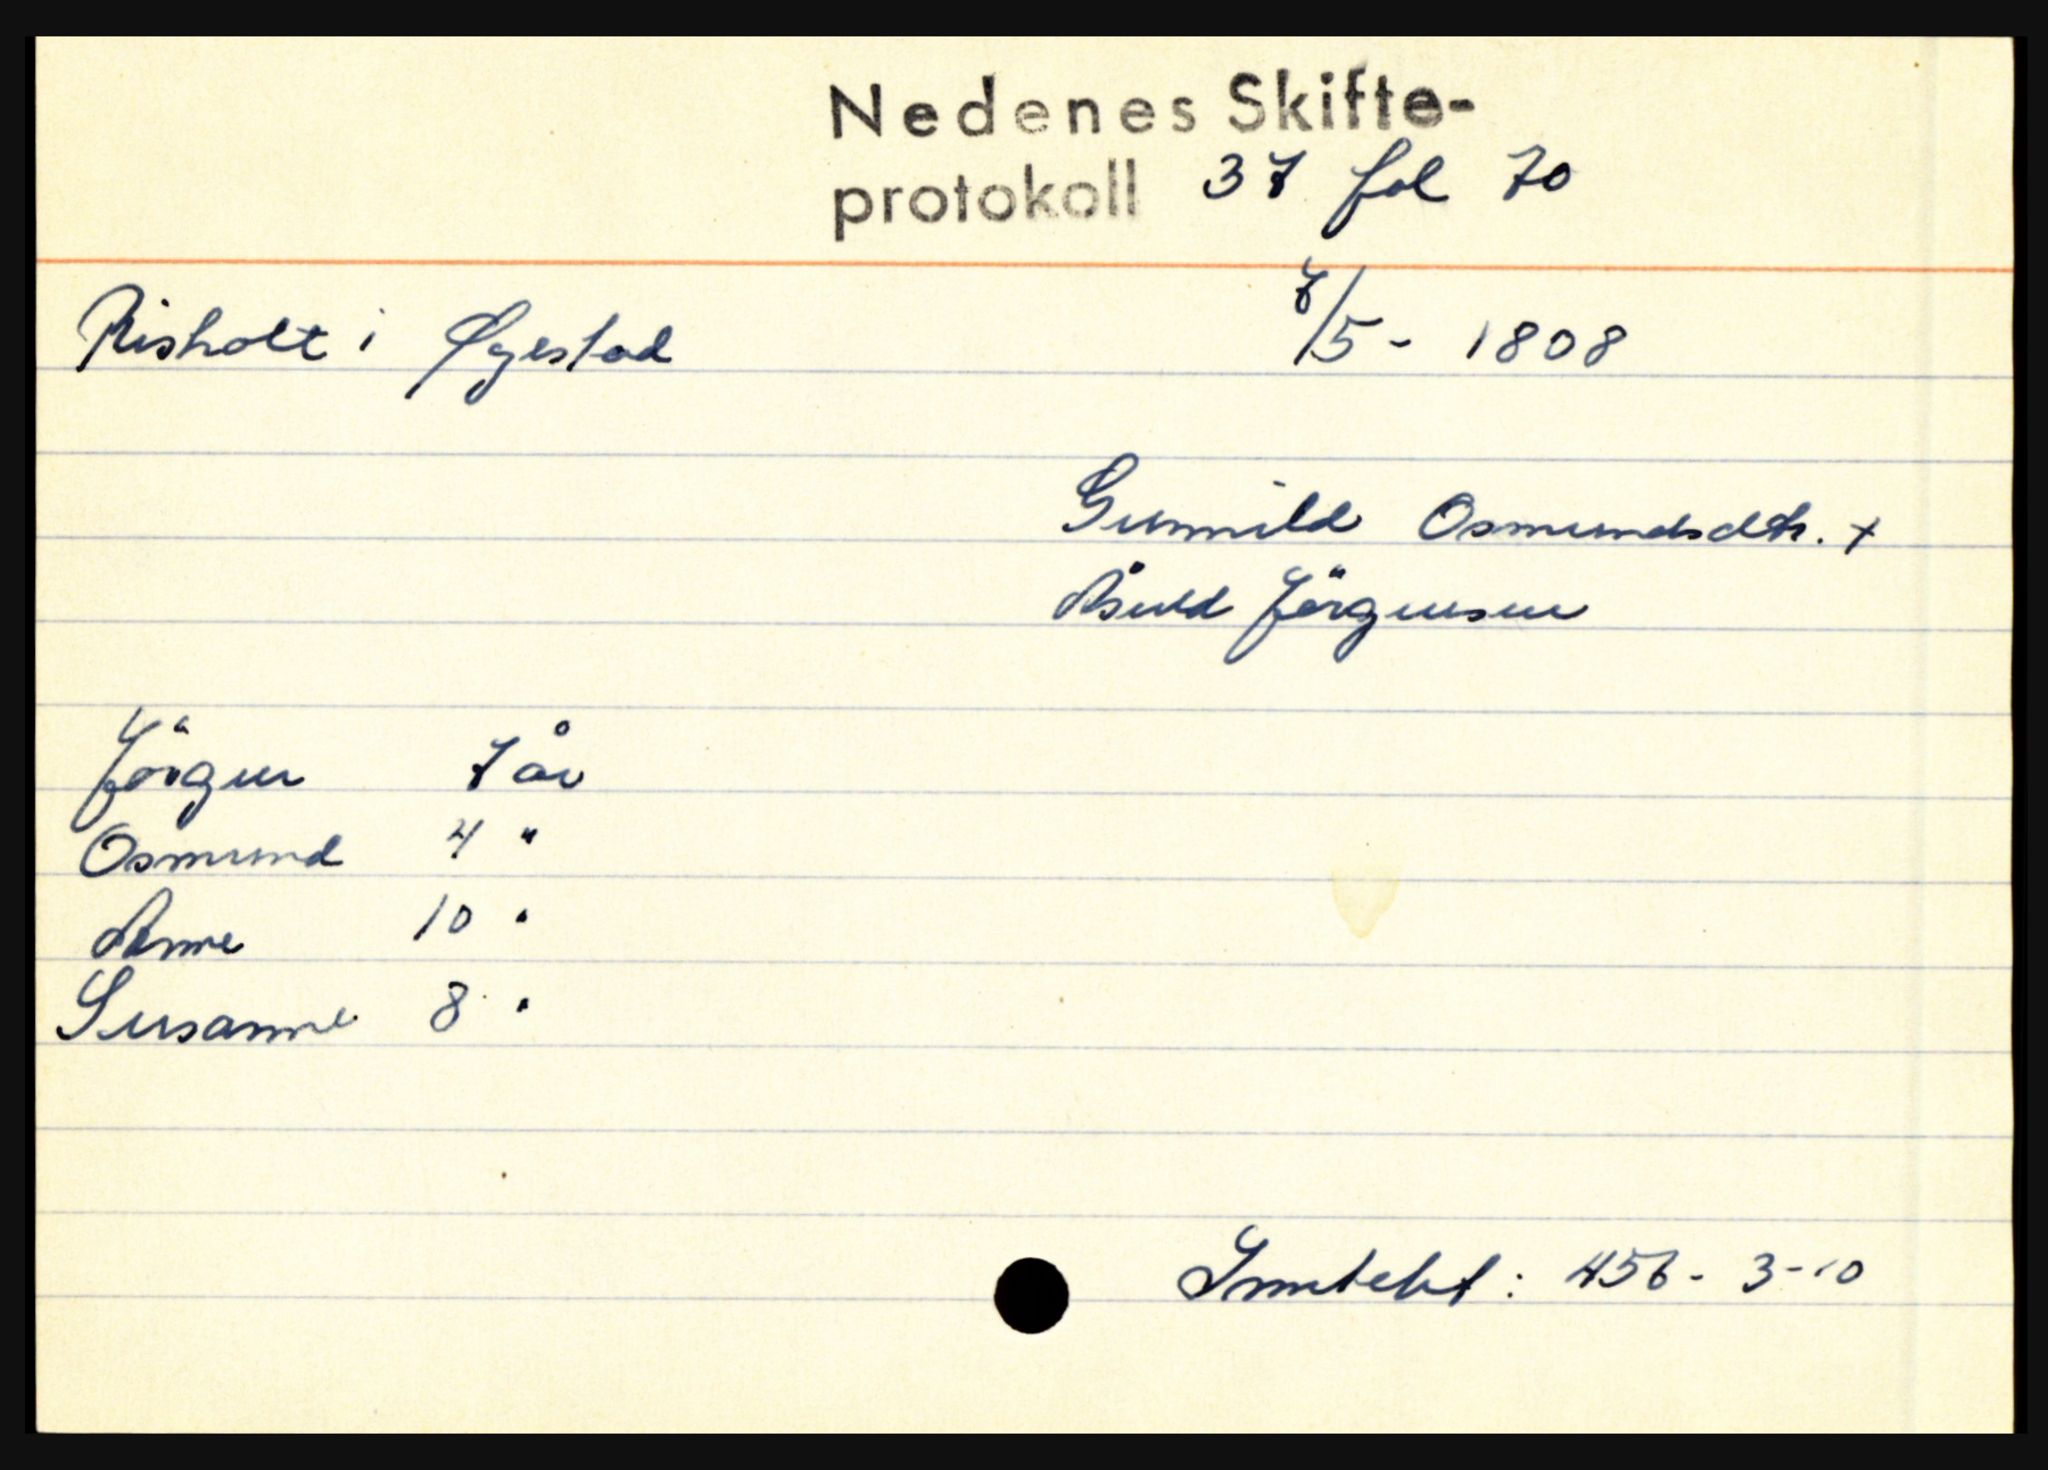 Nedenes Skifte-
protokoll 37 fol 70
Risholt i Øyestad 7/5 - 1808
Gunnild Osmundsdtr. +
Åsuld Jörgensen
Jörgen 7 år
Osmund 4 "
Anne 10 "
Susanne 8 "
Inntekt: 456 - 3 - 10